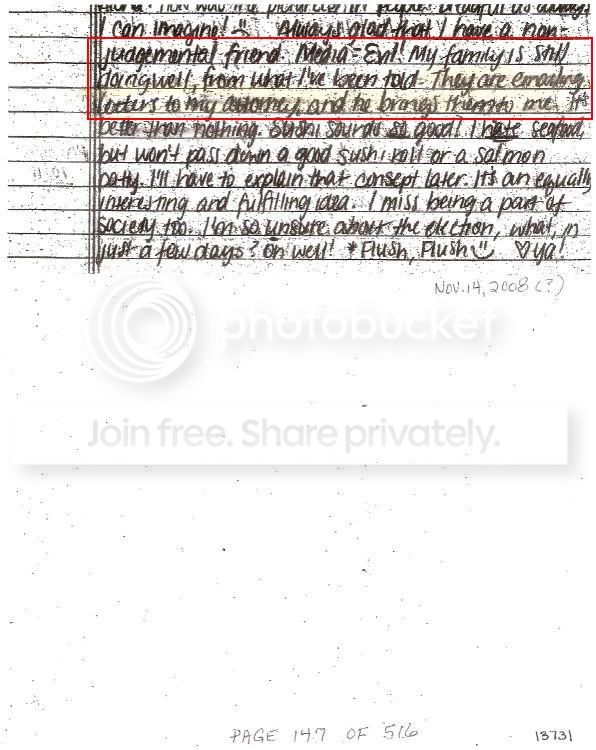 How was the picture(s) in People? Dreadful as always,
I can imagine! Always glad that I have a non-
judgemental friend. Media-Evil! My family is still
doing well, from what I've been told. They are emailing
letters to my attorney, and he brings them to me. It's
better than nothing. Sushi sounds so good! I hate seafood,
but won't pass down a good sushi roll or a salmon
patty. I'll have to explain that consept later. It's an equally
interesting and fulfilling idea. I miss being a part of
society too. I'm so unsure about the election, what, in
just a few days? Oh well! *Flush, Flush ♡ ya!
NOV. 14, 2008 (?)
photobucket
Join free. Share privately.
PAGE 147 OF 516
13731